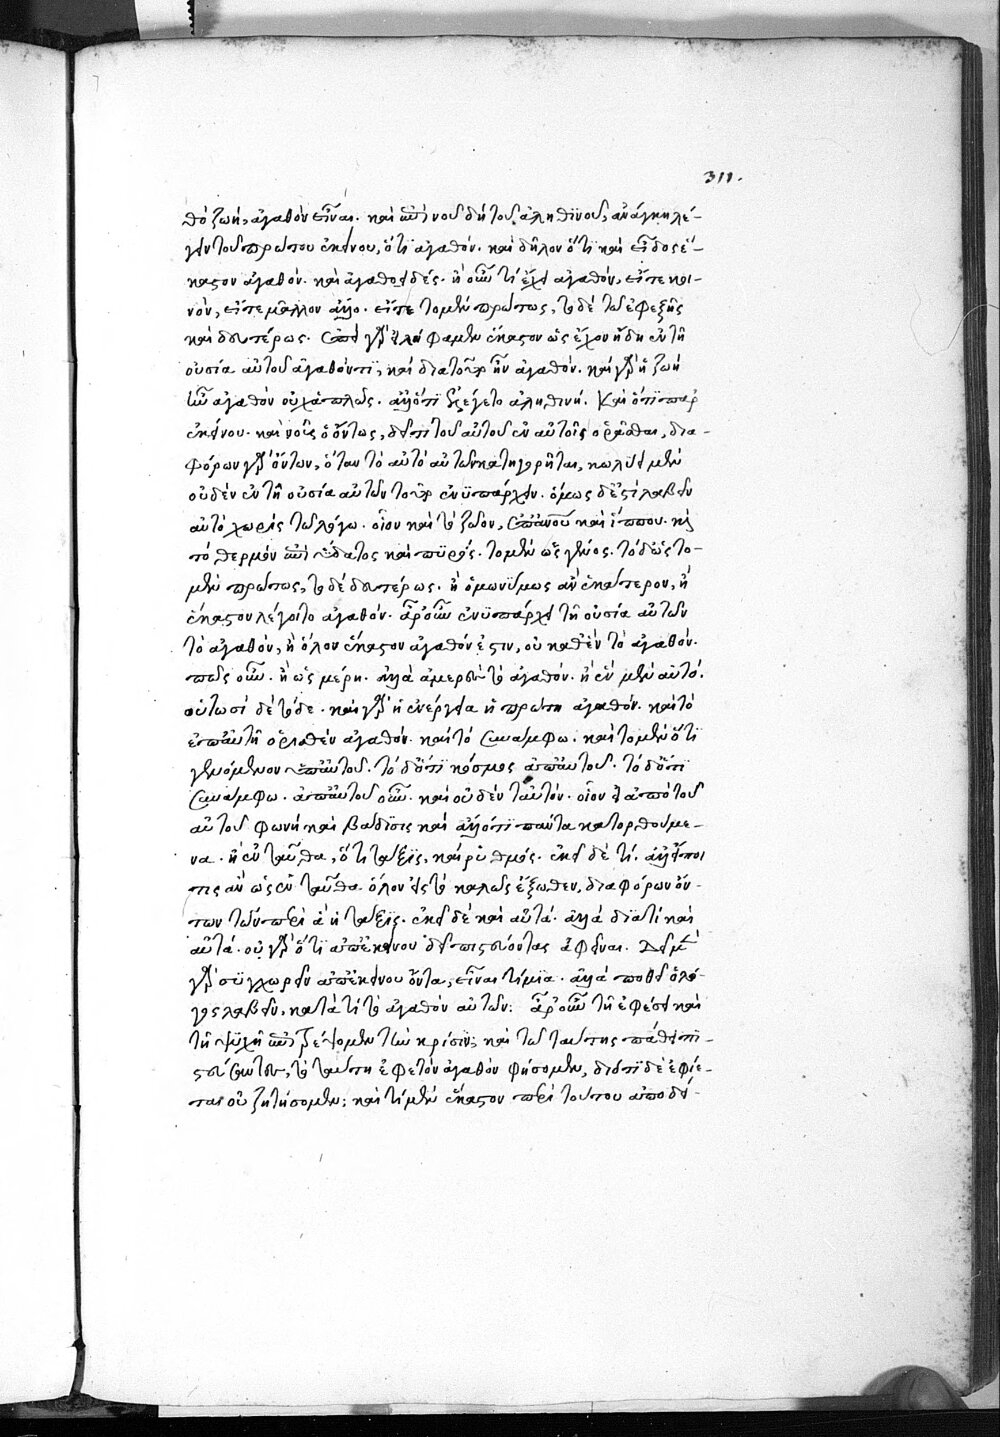 311.
θὸ ζωή, ἀγαθὸν εἶναι. καὶ ἐπὶ νοῦ δὴ τοῦ ἀληθινοῦ, ἀνάγκη λέ-
γειν τοῦ πρώτου ἐκείνου, ὅτι ἀγαθόν. καὶ δῆλον ὅτι καὶ εἶδος ἕ-
καστον ἀγαθόν. καὶ ἀγαθοειδές. ἢ οὖν τι ἔχει ἀγαθόν, εἴτε κοι-
νόν, εἴτε μᾶλλον ἄλλο. εἴτε τὸ μὲν πρώτως, τὸ δὲ τῷ ἐφεξῆς
καὶ δευτέρως. ἐπεὶ γὰρ εἰλή φαμεν ἕκαστον ὡς ἔχον ἤδη ἐν τῇ
οὐσίᾳ αὐτοῦ ἀγαθόν τι, καὶ διὰ τοῦτο ἦν ἀγαθόν. καὶ γὰρ ἡ ζωὴ
ἦν ἀγαθὸν οὐχ ἁπλῶς. ἀλλ' ὅτι ἐλέγετο ἀληθινή. καὶ ὅτι παρ'
ἐκείνου. καὶ νοῦς ὁ ὄντως, δεῖ τι τοῦ αὐτοῦ ἐν αὐτοῖς ὁρᾶσθαι, δια-
φόρων γὰρ ὄντων, ὅταν τὸ αὐτὸ αὐτῶν κατηγορῆται, κωλύει μὲν
οὐδὲν ἐν τῇ οὐσίᾳ αὐτῶν τοῦτο ἐνυπάρχειν. ὅμως δ' ἔστι λαβεῖν
αὐτὸ χωρὶς τῷ λόγῳ. οἷον καὶ τὸ ζῷον, ἐπ' ἀνθρώπου καὶ ἵππου. καὶ
τὸ θερμὸν ἐπὶ ὕδατος καὶ πυρός. τὸ μὲν ὡς γένος. τὸ δ' ὡς τὸ
μὲν πρώτως, τὸ δὲ δευτέρως. ἢ ὁμωνύμως ἂν ἑκάτερον, ἢ
ἕκαστον λέγοιτο ἀγαθόν. ἆρ' οὖν ἐνυπάρχει τῇ οὐσίᾳ αὐτῶν
τὸ ἀγαθόν, ἢ ὅλον ἕκαστον ἀγαθόν ἐστιν, οὐ καθ' ἓν τὸ ἀγαθόν.
πῶς οὖν. ἢ ὡς μέρη. ἀλλὰ ἀμερὲς τὸ ἀγαθόν. ἢ ἓν μὲν αὐτό.
οὑτωσὶ δὲ τόδε. καὶ γὰρ ἡ ἐνέργεια ἡ πρώτη ἀγαθόν. καὶ τὸ
ἐπ' αὐτῇ ὁρισθὲν ἀγαθόν. καὶ τὸ συνάμφω. καὶ τὸ μὲν ὅτι
γενόμενον ὑπ' αὐτοῦ. τὸ δ' ὅτι κόσμος ἀπ' αὐτοῦ. τὸ δ' ὅτι
συνάμφω. ἀπ' αὐτοῦ οὖν. καὶ οὐδὲν ταὐτόν. οἷον εἰ ἀπὸ τοῦ
αὐτοῦ φωνὴ καὶ βάδισις καὶ ἄλλό τι πάντα κατορθούμε-
να. ἢ ἐν ταῦθα, ὅτι τάξις, καὶ ῥυθμός. ἐκεῖ δὲ τί. ἀλλ' εἴποι
τις ἂν ὡς ἐν ταῦθα ὅλον εἰς τὸ καλῶς ἔξωθεν, διαφόρων ὄν-
των τῶν περὶ ἃ ἡ τάξις. ἐκεῖ δὲ καὶ αὐτά. ἀλλὰ διὰ τί καὶ
αὐτά. οὐ γὰρ ὅτι ἀπ' ἐκείνου δεῖ πιστεύοντας ἀφεῖναι. δεῖ μὲν
γὰρ συγχωρεῖν ἀπ' ἐκείνου ὄντα, εἶναι τίμια. ἀλλὰ ποθεῖ ὁ λό-
γος λαβεῖν, κατὰ τί τὸ ἀγαθὸν αὐτῶν: ἆρ' οὖν τῇ ἐφέσει καὶ
τῇ ψυχῇ ἐπιτρέψομεν τὴν κρίσιν; καὶ τῷ ταύτης πάθει πι-
στεύσαντες, τὸ ταύτῃ ἐφετὸν ἀγαθὸν φήσομεν, διότι δὲ ἐφίε-
ται οὐ ζητήσομεν; καὶ τί μὲν ἕκαστον περὶ τούτου ἀποδεί-